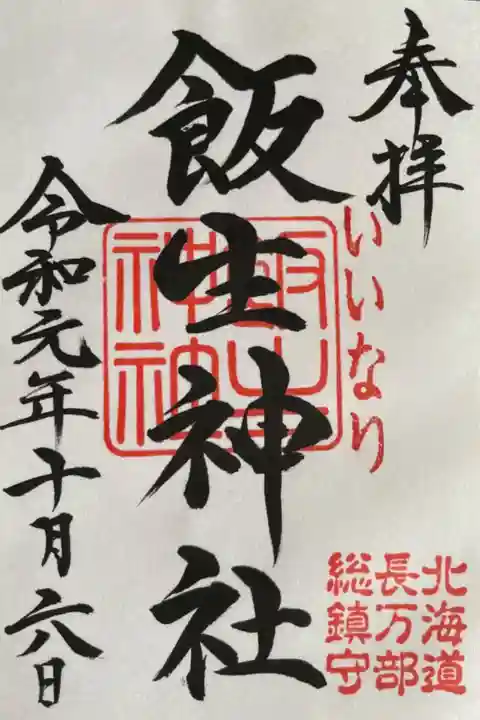 奉拝
いいなり
北海道
長万部
総鎮守
飯生神社
飯生神社
令和元年十月六日